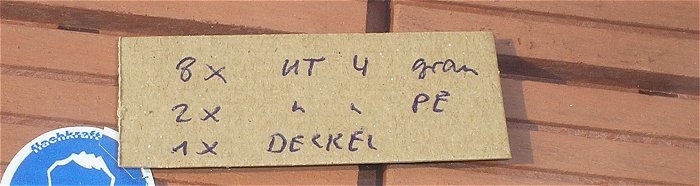 8x UT 4 grau
2x " " PE
1x DECKEL
flachkraft